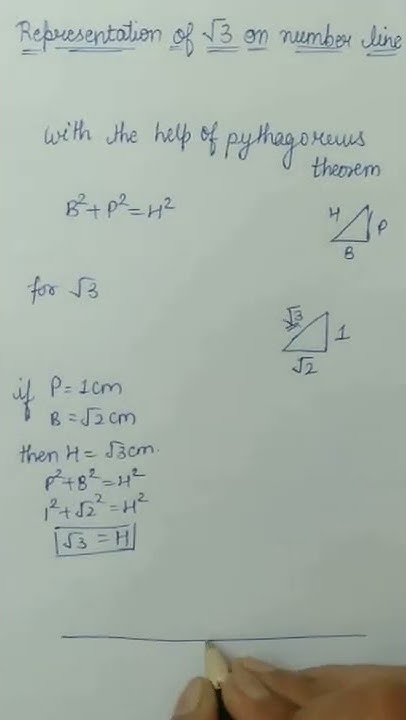 Representation of √3 on number line
with the help of pythagoreus
theorem
B²+P²=H²
H
P
B
for √3
√3
1
√2
if P=1cm
B=√2cm
then H=√3cm.
P²+B²=H²
1²+√2²=H²
√3=H